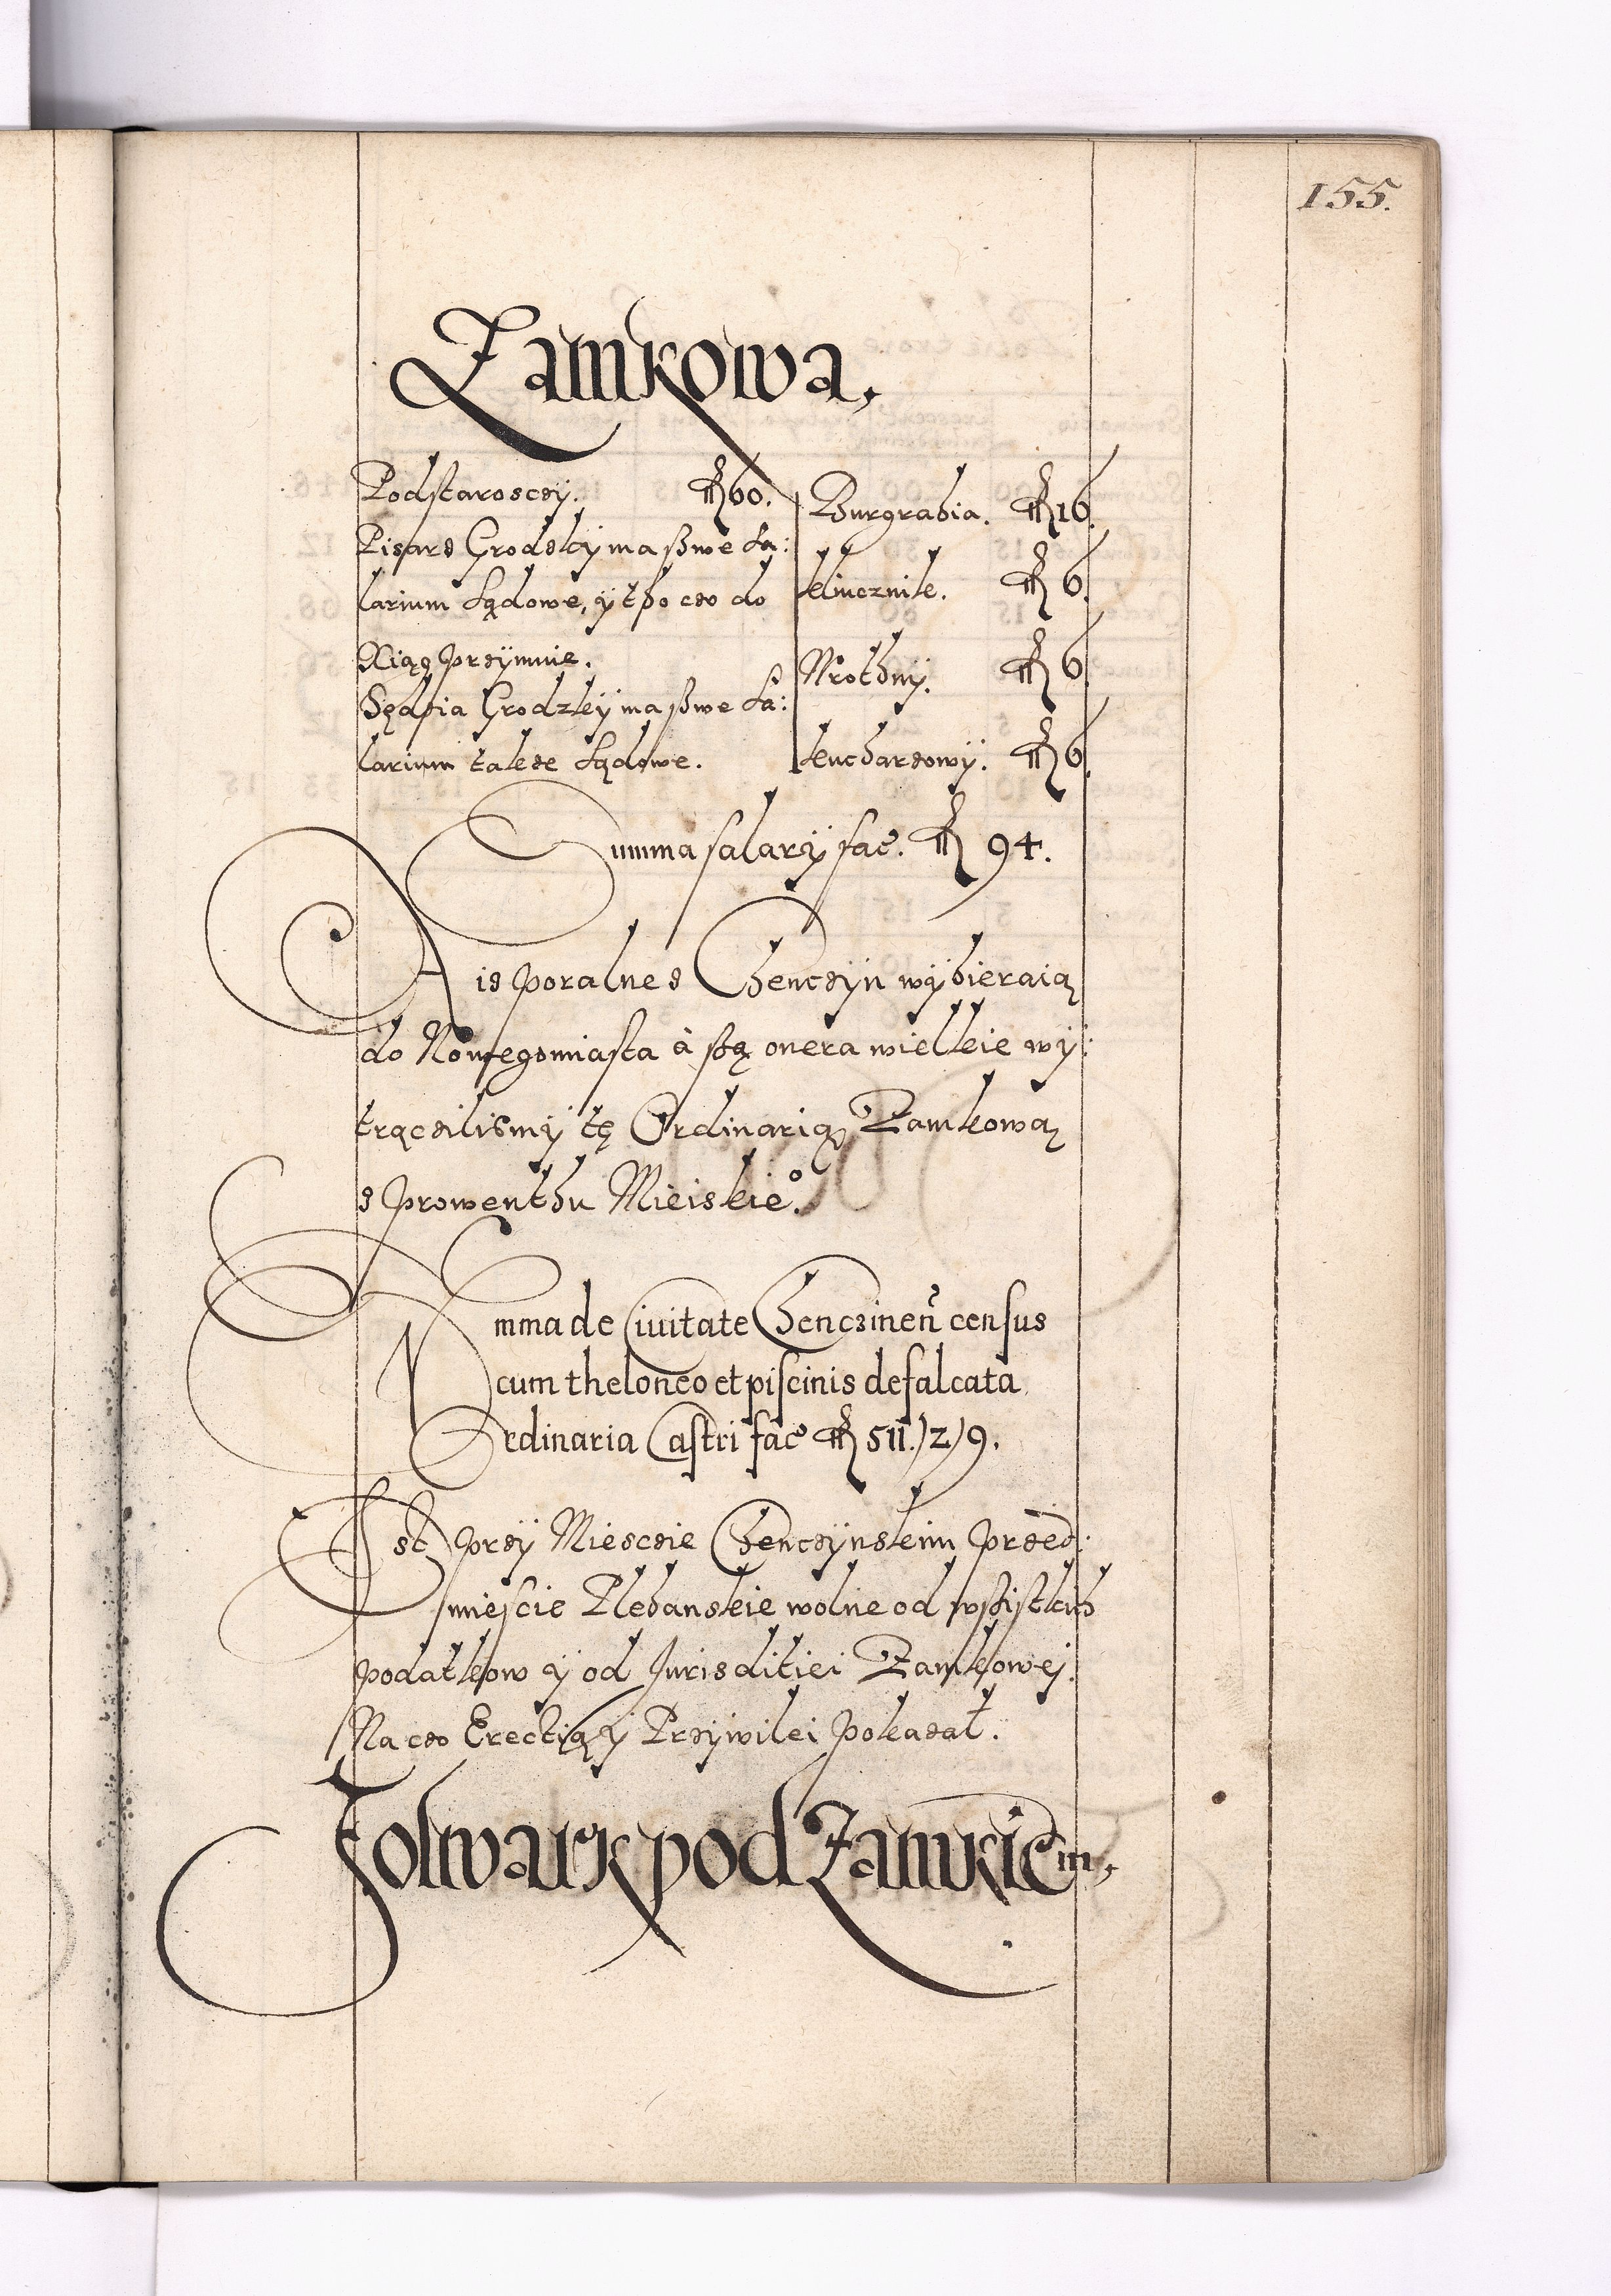 155.
Zamkowa,
Podstarosczy. fl 60.
Pisarz Grodsky ma ßwe Sa:
larium Sądowe, y tho czo do
Xiąg przymuie.
Sędzia Grodzky ma ßwe Sa:
larium takze Sądowe.
Burgrabia. fl 16.
kliucznik. fl 6.
Wrothny. fl 6.
kucharzowy. fl 6.
Summa salary fac. fl 94.
A iz poralne z Chenczyn wybieraią
do Nowegomiasta à są onera wielkie wy:
trączilismy tę Ordinarią Zamkową
z prowenthu Mieiskieo.
Summa de Ciuitate Chencinen census
cum theloneo et piscinis defalcata
Ordinaria Castri fac fl 511.)2)9.
Ist przy Miesczie Chenczynskim przed:
miescie Plebanskie wolne od wßistkich
podatkow y od Jurisditiei Zamkowej.
Na czo Erectią y Przywilei pokazał.
Folwark pod Zamkiem,